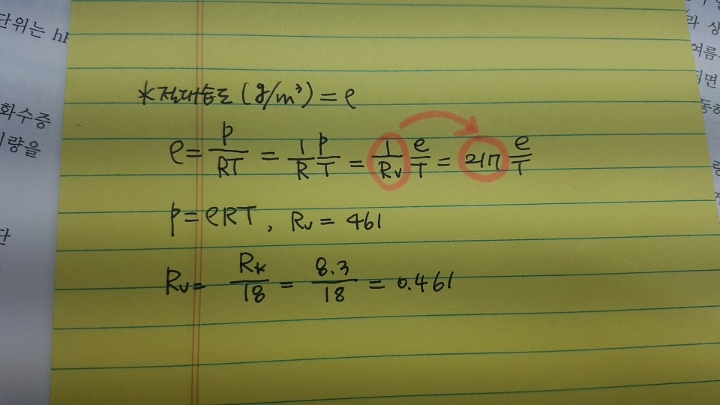 단위는 hP
화수증
기량을
단
*절대습도 (g/m³) = ρ
ρ = P/RT = 1/R P/T = 1/Rv e/T = 217 e/T
P = ρRT, Rv = 461
Rv = R*/18 = 8.3/18 = 0.461
라 상
여름
되면